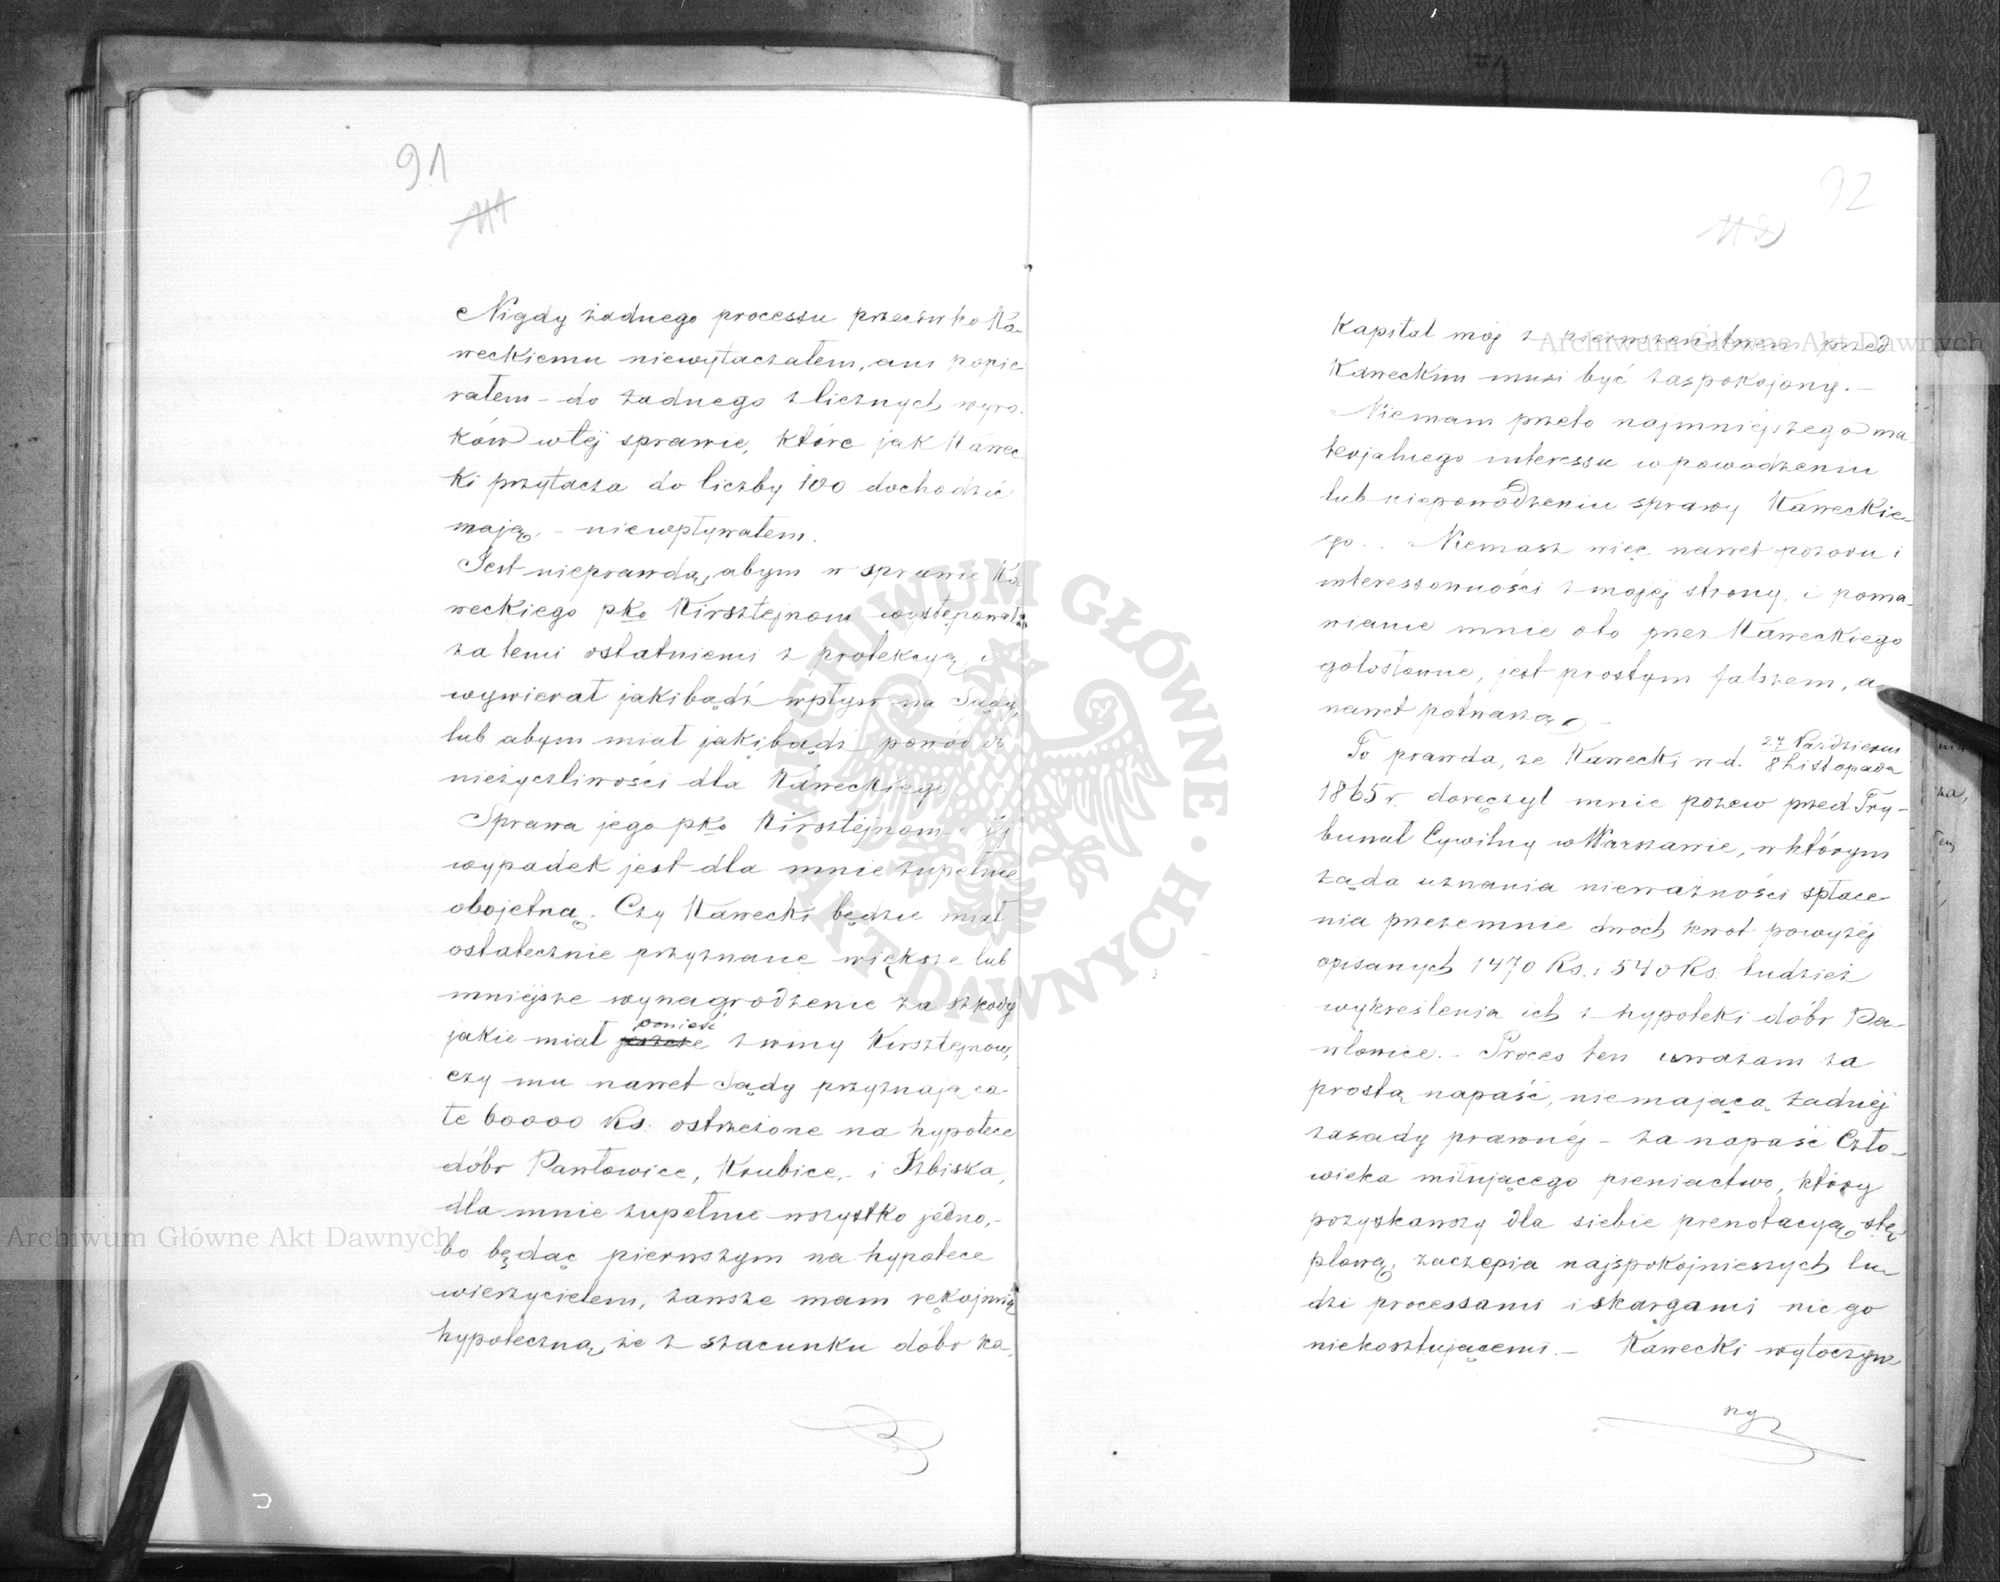 91
111
Nigdy żadnego processu przeciwko Ka-
weckiemu niewytaczałem, ani popie-
rałem – do żadnego z licznych wyro-
ków w téj sprawie, które jak Kawec-
ki przytacza do liczby 100 dochodzić
mają, – niewpływałem.
Jest nieprawdą, abym w sprawie Ka-
weckiego pko Kirsztejnom występował
za temi ostatniemi z protekcyą, i
wywierał jakibądź wpływ na Sądy,
lub abym miał jakibądź powód do
nieżyczliwości dla Kaweckiego.
Sprawa jego pko Kirsztejnom i jéj
wypadek jest dla mnie zupełnie
obojetną. Czy Kawecki będzie miał
ostatecznie przyznane większe lub
mniejsze wynagrodzenie za szkody
jakie miał ponieść z winy Kirsztejnow,
czy mu nawet Sądy przyznają ca-
łe 60000 Rs. ostrzeżone na hypotece
dóbr Pawłowice, Krubice, – i Izbiska,
dla mnie zupełnie wszystko jedno, –
bo będąc pierwszym na hypotece
wierzycielem, zawsze mam rękojmią
hypoteczną, że z szacunku dóbr ka-
92
112
Kapitał mój z pierwszeństwem przed
Kaweckim musi być zaspokojony. –
Niemam przeto najmniejszego ma-
terjalnego interessu w powodzeniu
lub niepowodzeniu sprawy Kaweckie-
go. Niemasz więc nawet pozoru i
interessowności z mojéj strony, i poma-
wianie mnie oto przez Kaweckiego
gołosłowne, jest prostym fałszem, a
nawet potwarzą. –
To prawda, że Kawecki w d. 27 Paździer. / 8 Listopada
1865 r. doręczył mnie pozew przed Try-
bunał Cywilny w Warszawie, w którym
żąda uznania nieważności spłace-
nia przezemnie dwoch kwot powyżéj
opisanych 1470 Rs. i 540 Rs. tudzież
wykreślenia ich z hypoteki dóbr Pa-
włowice. – Proces ten uważam za
prostą napaść, niemającą żadnéj
zasady prawnéj – za napaść Czło-
wieka miłującego pieniactwo, który
pozyskawszy dla siebie prenotacyą stę-
plową, zaczepia najspokojniejszych lu-
dzi processami i skargami nic go
niekosztującemi. – Kawecki wytoczyw-
szy
Archiwum Główne Akt Dawnych
Archiwum Główne Akt Dawnych
ARCHIWUM GŁÓWNE AKT DAWNYCH